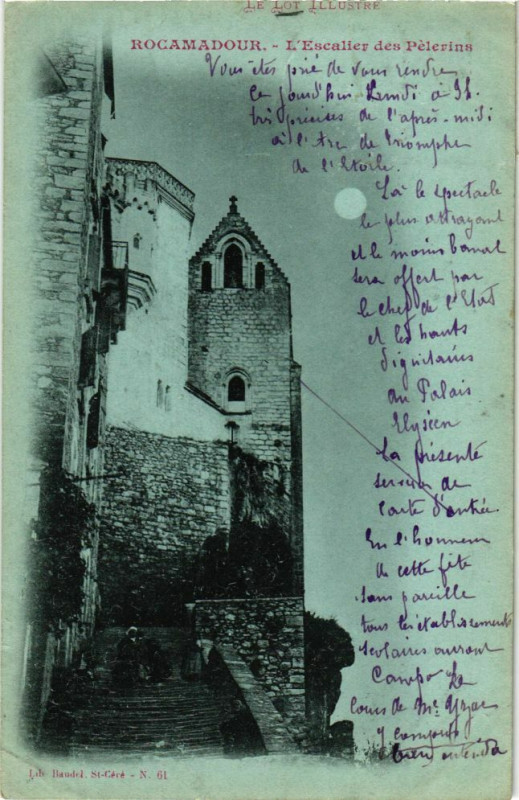 LE LOT ILLUSTRÉ
ROCAMADOUR. - L'Escalier des Pèlerins
Vous êtes prié de vous rendre
ce jourd'hui Lundi à 3h.
très précises de l'après-midi
à l'Arc de Triomphe
de l'Etoile.
Là le spectacle
le plus attrayant
et le moins banal
sera offert par
le chef de l'Etat
et les hauts
dignitaires
du Palais
Elyséen
La présente
servira de
carte d'entrée.
En l'honneur
de cette fête
sans pareille
tous les établissements
scolaires auront
campo. Le
cours de Mr.
y compris
bien entendu
Lib. Baudel, St-Céré - N. 61